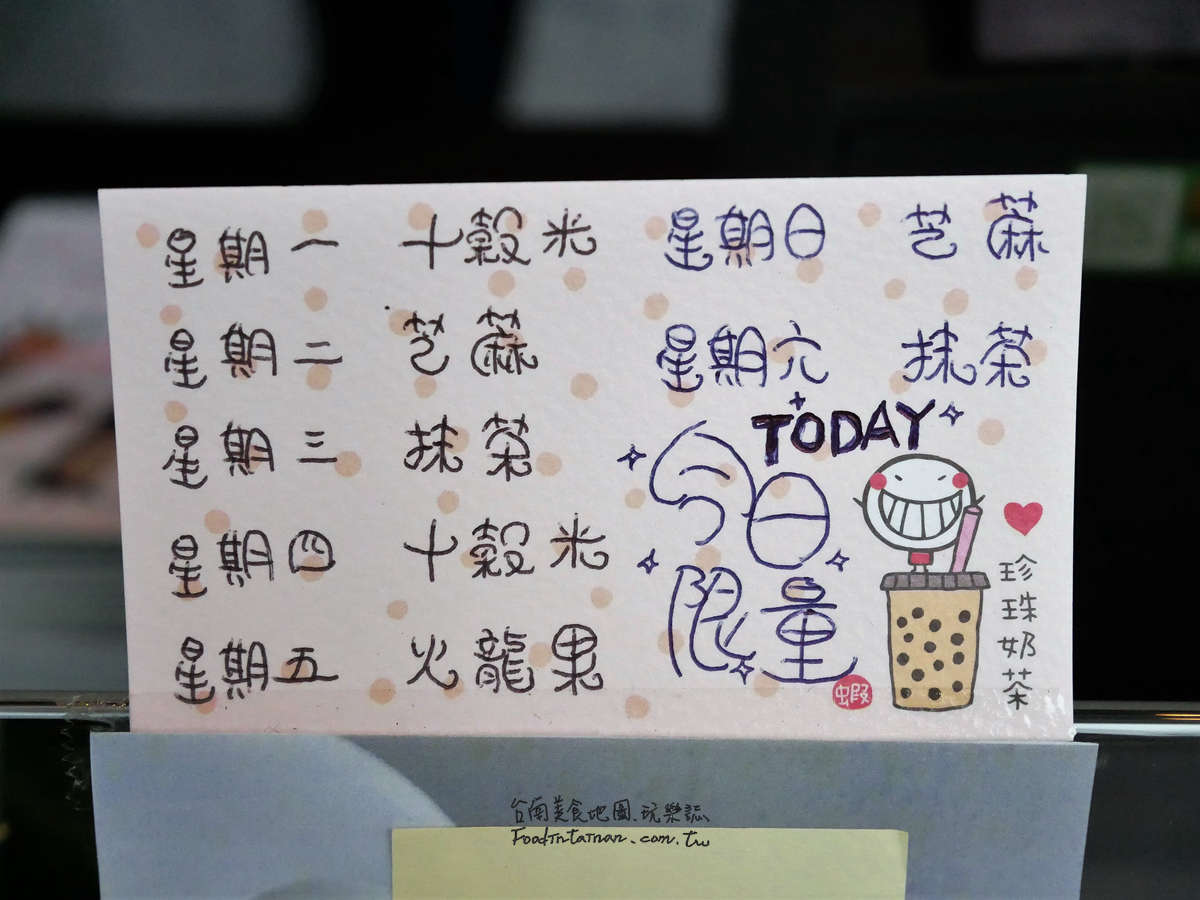 星期一 十穀米
星期二 芝蔴
星期三 抹茶
星期四 十穀米
星期五 火龍果
星期日 芝蔴
星期六 抹茶
TODAY
今日
限量
蝦
珍珠奶茶
台南美食地圖.玩樂誌
FoodInTainan.com.tw